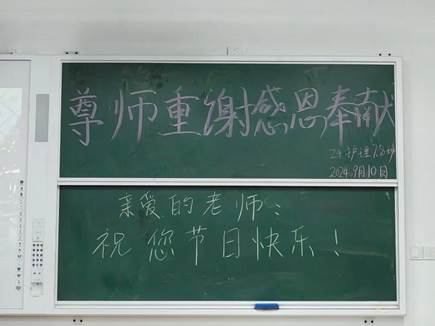 尊师重谢感恩奉献
24护理7.8班
2024.9月10日
亲爱的老师:
祝您节日快乐!